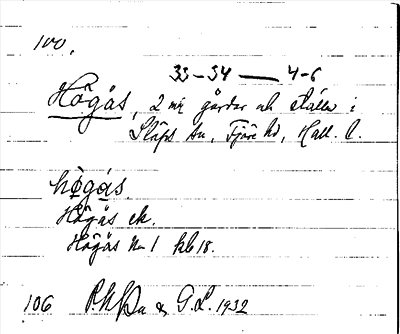 100.
33–34 — 4-6
Högås, 2 gårdar och ställe i
Släps sn, Fjäre hd, Hall. l.
högås.
Högås ek.
Högås No 1 kb 18.
106 & G.L. 1932